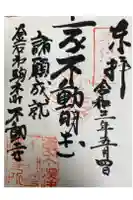 奉拝
令和三年五月四日
不動明王
諸願成就
釜石市駒木町不動寺